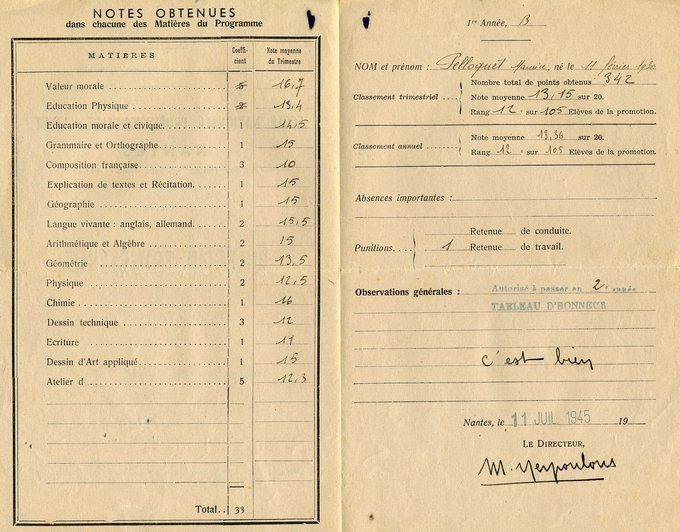 NOTES OBTENUES
dans chacune des Matières du Programme
MATIÈRES Coeffi-cient Note moyenne du Trimestre
Valeur morale 16,7
Education Physique 13,4
Education morale et civique. 1 14,5
Grammaire et Orthographe 1 15
Composition française 3 10
Explication de textes et Récitation. 1 15
Géographie 1 15
Langue vivante : anglais, allemand. 2 15,5
Arithmétique et Algèbre 2 15
Géométrie 2 13,5
Physique 2 12,5
Chimie 1 16
Dessin technique 3 12
Ecriture 1
Dessin d'Art appliqué 1 15
Atelier d 5 12,3
Total.. 33
1re Année, B
NOM et prénom : Pelloquet Maurice, né le 11 février 1930
Nombre total de points obtenus 342
Classement trimestriel : Note moyenne 13,15 sur 20.
Rang 12e sur 105 Elèves de la promotion.
Note moyenne 13,36 sur 20.
Classement annuel : Rang 12e sur 105 Elèves de la promotion.
Absences importantes :
Retenue de conduite.
Punitions.... 1 Retenue de travail.
Observations générales : Autorisé à passer en 2e année
TABLEAU D'HONNEUR
c'est bien
Nantes, le 11 JUIL 1945 19
LE DIRECTEUR,